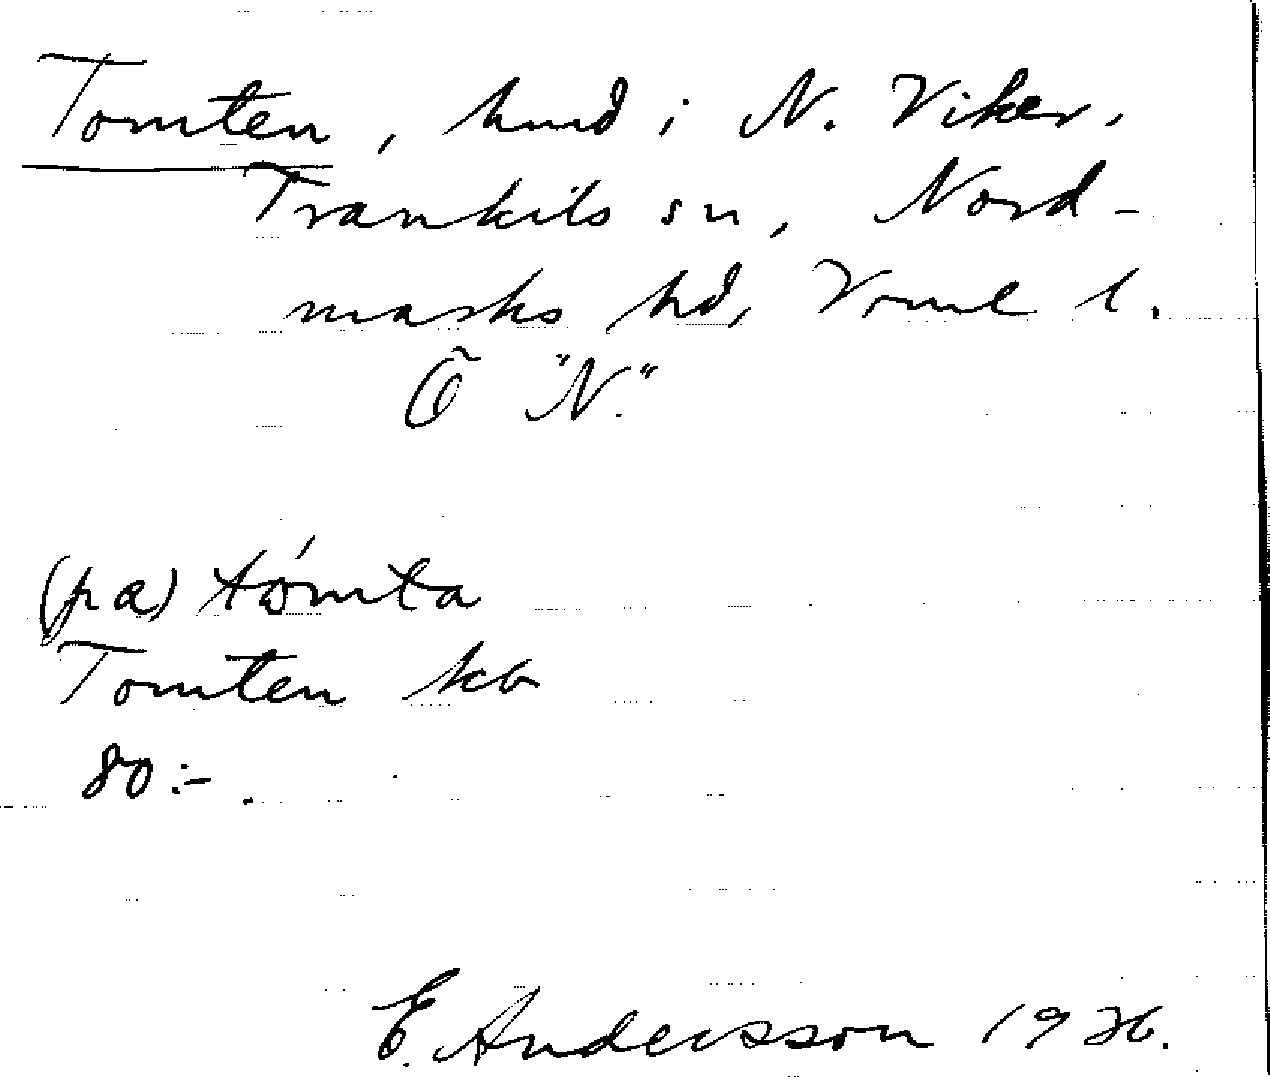 Tomten, hmd i N. Viker,
Trankils sn, Nord-
marks hd, Vrml l.
Ö "N."
(pa) tómta
Tomten kb
80:-.
E. Andersson 1926.